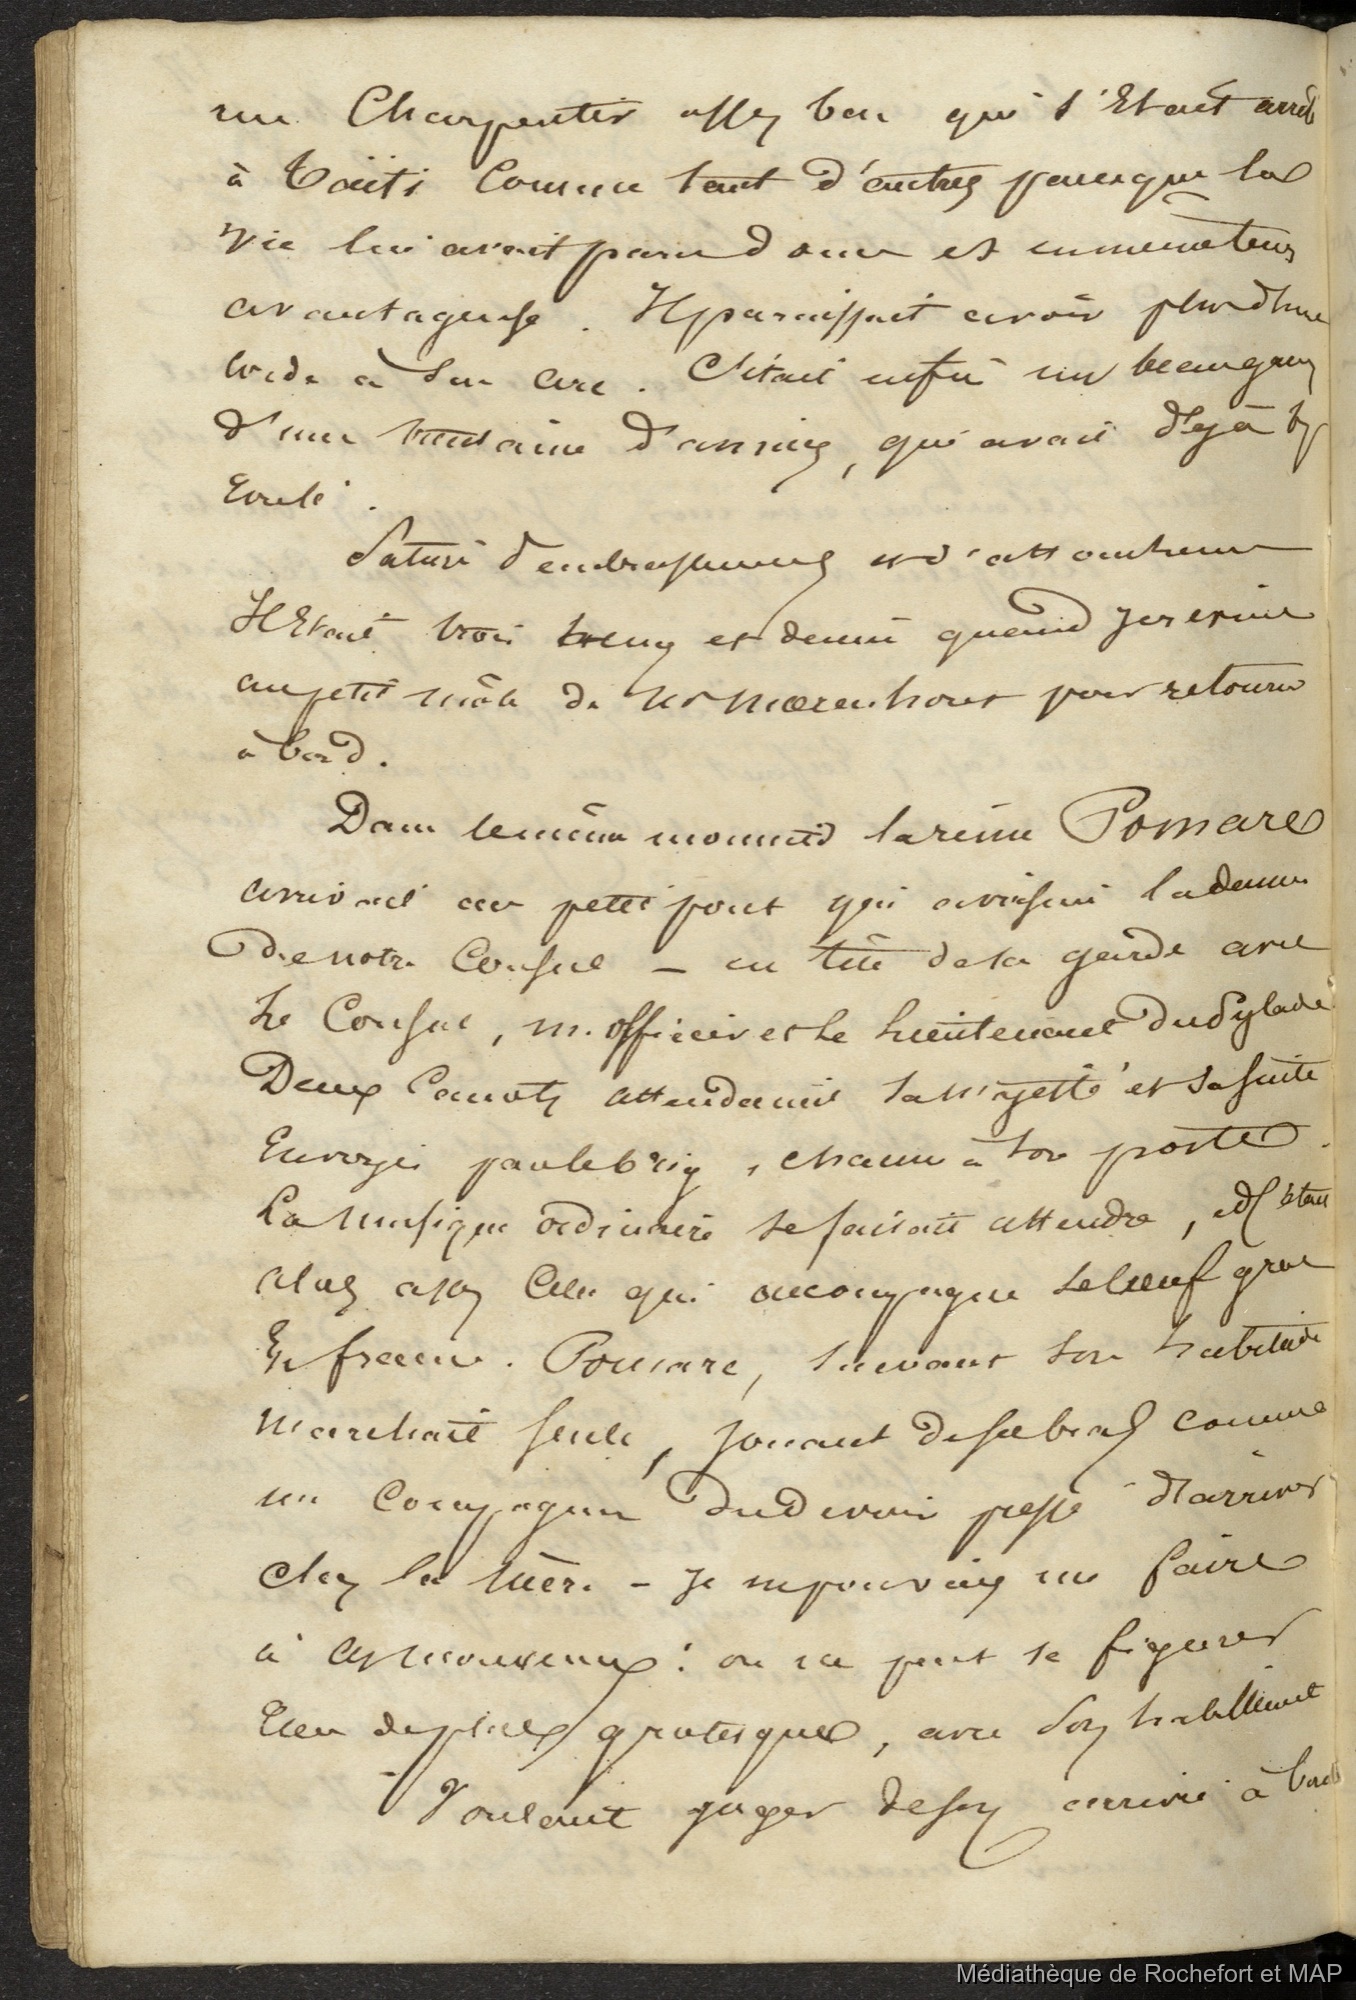 un Charpentier assez bon qui s'Etait arrêté
à Taïti Comme tant d'autres parceque la
vie lui avait paru douce et en même tems
avantageuse. Il paraissait avoir plus d'une
corde à son arc. C'était enfin un beau garçon
d'une trentaine d'années, qui avait déjà
roulé.
Saturé d'embrassemens et d'attouchemens
Il Etait trois heures et demie quand je revins
au petit môle de Mr Moerenhout pour retourner
à bord.
Dans le même moment la reine Pomare
arrivait au petit pont qui avoisine la demeure
de notre Consul – en tête de sa garde avec
le Consul, m. officier et le lieutenant du Pylade
Deux Canots attendaient sa majesté et sa suite
Envoyés par le brig, chacun à son poste.
La musique ordinaire se faisait attendre, c'était
alors assez celle qui accompagne le bœuf gras
En france. Pomare, suivant son habitude
marchait seule, jouant de ses bras comme
un Compagnon du devoir pressé d'arriver
chez la mère – Je ne pouvais me faire
à ces mouvemens: on ne peut se figurer
rien de plus grotesque, avec son habillement
Voulant juger de son arrivée à bord